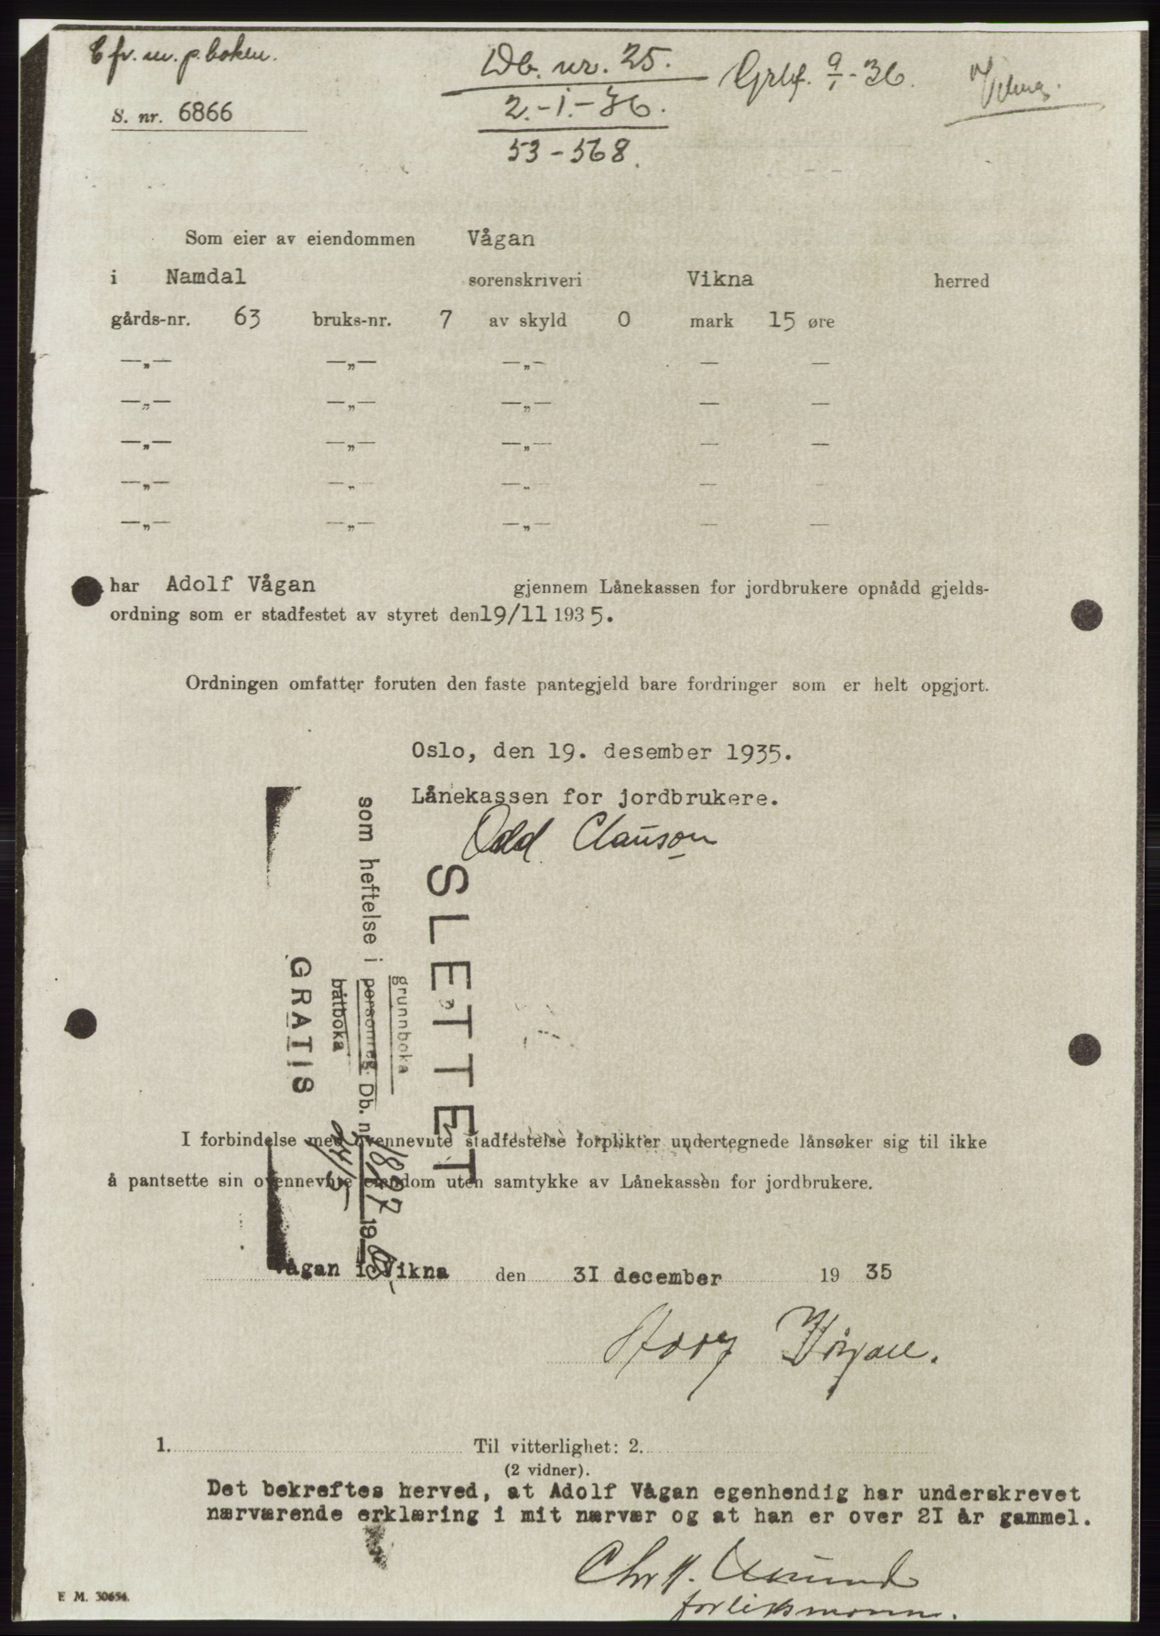 Efr. m. p. boken.
Db. nr. 25.
2.-1.-36.
53-568.
Grbf. 9/1-36.
S. nr. 6866
Som eier av eiendommen Vågan
i Namdal sorenskriveri Vikna herred
gårds-nr. 63 bruks-nr. 7 av skyld 0 mark 15 øre
—„— —„— —„— — —
—„— —„— —„— — —
—„— —„— —„— — —
—„— —„— —„— — —
—„— —„— —„— — —
har Adolf Vågan gjennem Lånekassen for jordbrukere opnådd gjelds-
ordning som er stadfestet av styret den 19/11 1935.
Ordningen omfatter foruten den faste pantegjeld bare fordringer som er helt opgjort.
Oslo, den 19. desember 1935.
Lånekassen for jordbrukere.
Odd Clauson
SLETTET
grunnboka
som heftelse i personreg. Db. nr. 1897 19
båtboka
GRATIS
I forbindelse med ovennevnte stadfestelse forplikter undertegnede lånsøker sig til ikke
å pantsette sin ovennevnte eiendom uten samtykke av Lånekassen for jordbrukere.
Vågan i Vikna den 31 december 19 35
1. Til vitterlighet: 2.
(2 vidner).
Det bekreftes herved, at Adolf Vågan egenhendig har underskrevet
nærværende erklæring i mit nærvær og at han er over 21 år gammel.
forliksmann.
E M. 30654.